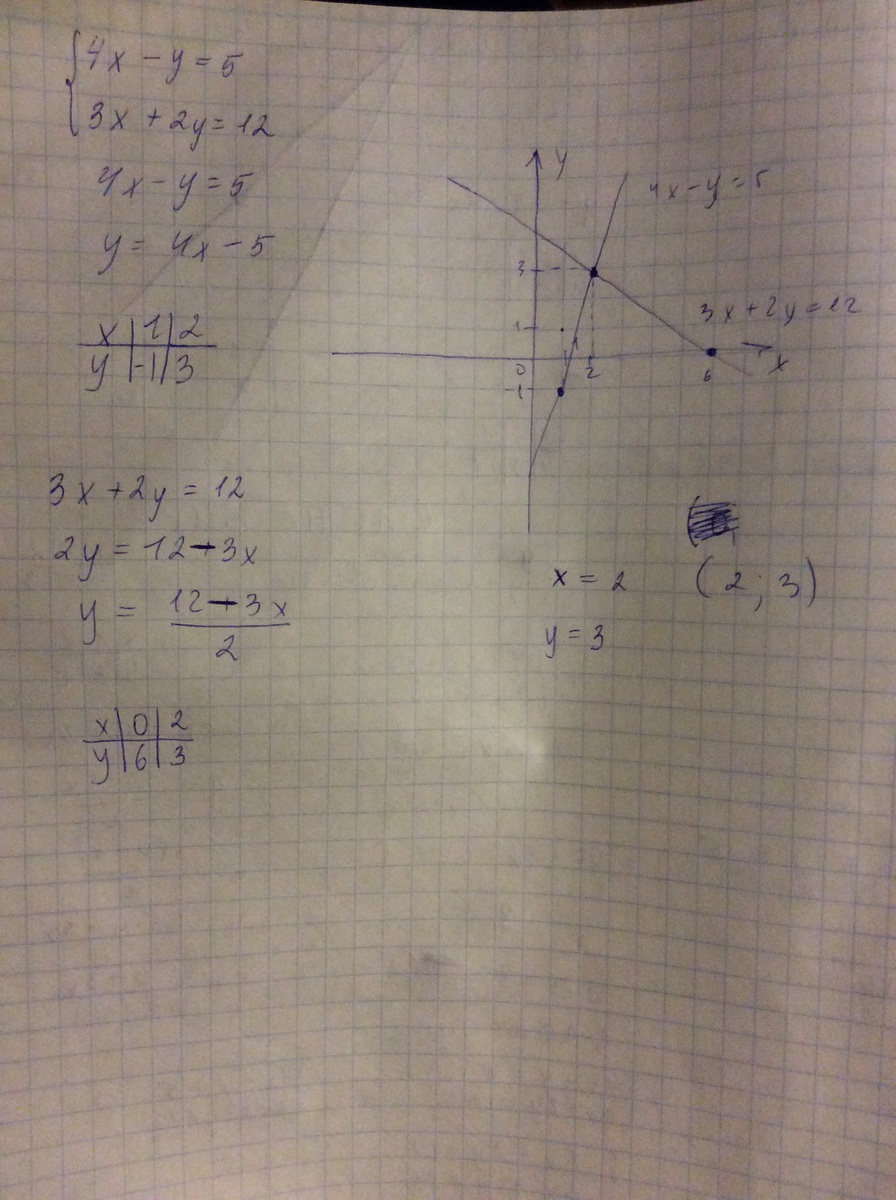 4x - y = 5
3x + 2y = 12
4x - y = 5
y = 4x - 5
x | 1 | 2
y | -1 | 3
3x + 2y = 12
2y = 12 - 3x
y = (12 - 3x)/2
x | 0 | 2
y | 6 | 3
y
4x - y = 5
3
3x + 2y = 12
1
0
1
2
6
x
-1
x = 2
(2; 3)
y = 3